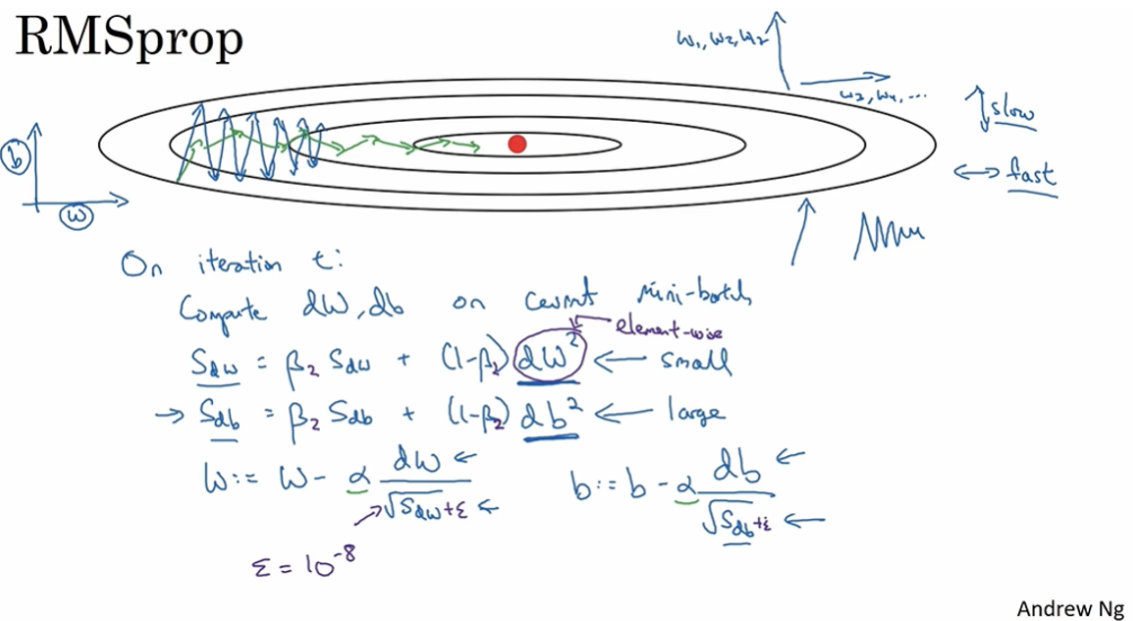 RMSprop
w₁, w₂, w₂
w₃, w₄, ...
slow
fast
b
w
On iteration t:
Compute dW, db on current mini-batch
element-wise
S_dw = β₂ S_dw + (1-β₂) dW² ← small
→ S_db = β₂ S_db + (1-β₂) db² ← large
W := W - α dW / √S_dw + ε ←
b := b - α db / √S_db + ε ←
ε = 10⁻⁸
Andrew Ng